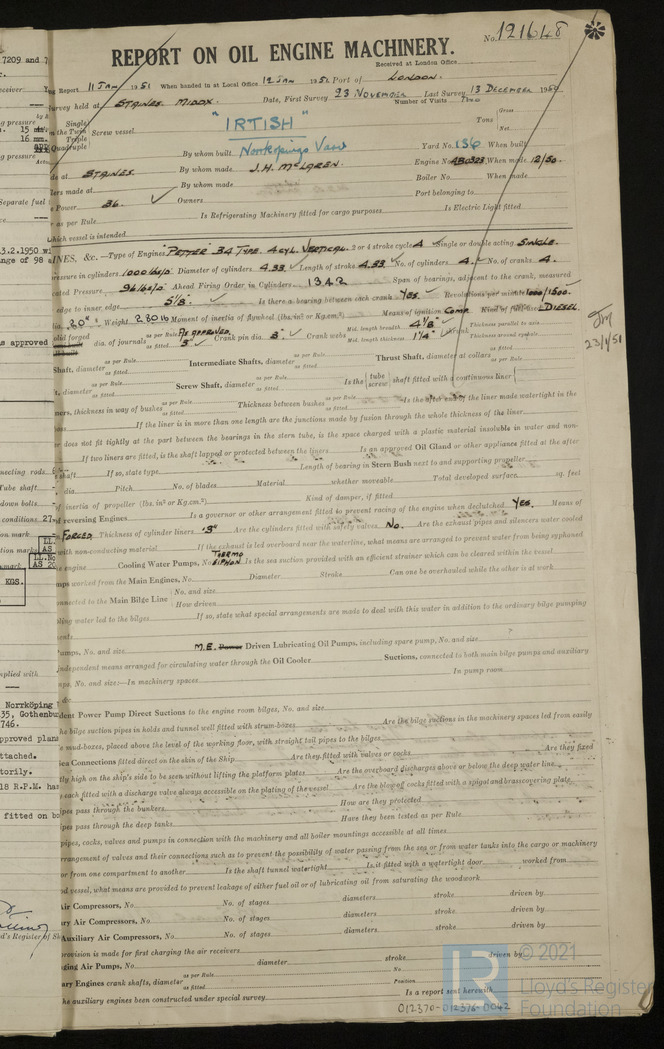 No. 121648
REPORT ON OIL ENGINE MACHINERY.
Received at London Office
Report 11 JAN 1951 When handed in at Local Office 12 JAN 1951 Port of LONDON.
Survey held at STAINES MIDDX Date, First Survey 23 NOVEMBER Last Survey 13 DECEMBER 1950
Number of Visits Two
Single
Twin
Triple
Quadruple
Screw vessel
"IRTISH"
Tons
Gross
Net
By whom built Norrköpings Varv Yard No. 136 When built
at STAINES By whom made J.H. McLAREN. Engine No. When made 12/50.
made at By whom made Boiler No. When made
Power 36. Owners Port belonging to
as per Rule Is Refrigerating Machinery fitted for cargo purposes Is Electric Light fitted
which vessel is intended
INES, &c.—Type of Engines "PETTER" B4 TYPE. 4 CYL. VERTICAL. 2 or 4 stroke cycle 4 Single or double acting SINGLE.
pressure in cylinders 1000 lbs/□" Diameter of cylinders 4.33 Length of stroke 4.33 No. of cylinders 4. No. of cranks 4.
cated Pressure 96 lbs/□" Ahead Firing Order in Cylinders 1342 Span of bearings, adjacent to the crank, measured
edge to inner edge 5⅛" Is there a bearing between each crank Yes. Revolutions per minute 1000/1500.
dia. 20" Weight 280 lb Moment of inertia of flywheel (lbs. in² or Kg.cm.²) Means of ignition COMP. Kind of fuel used DIESEL
dia. of journals as per Rule AS APPROVED as fitted 3" Crank pin dia. 3" Crank webs Mid. length breadth 4⅛" Mid. length thickness 1¼" Thickness parallel to axis
Thickness around eyehole
23/1/51
Shaft, diameter as per Rule as fitted Intermediate Shafts, diameter as per Rule as fitted Thrust Shaft, diameter at collars as per Rule as fitted
t, diameter as per Rule as fitted Screw Shaft, diameter as per Rule as fitted Is the tube screw shaft fitted with a continuous liner
ners, thickness in way of bushes as per Rule as fitted Thickness between bushes as per Rule as fitted Is the after end of the liner made watertight in the
boss If the liner is in more than one length are the junctions made by fusion through the whole thickness of the liner
er does not fit tightly at the part between the bearings in the stern tube, is the space charged with a plastic material insoluble in water and non-
If two liners are fitted, is the shaft lapped or protected between the liners Is an approved Oil Gland or other appliance fitted at the after
shaft If so, state type Length of bearing in Stern Bush next to and supporting propeller
dia. Pitch No. of blades Material whether moveable Total developed surface sq. feet
of inertia of propeller (lbs. in² or Kg.cm.²) Kind of damper, if fitted
reversing Engines Is a governor or other arrangement fitted to prevent racing of the engine when declutched YES. Means of
FORCED. Thickness of cylinder liners .9" Are the cylinders fitted with safety valves No. Are the exhaust pipes and silencers water cooled
with non-conducting material If the exhaust is led overboard near the waterline, what means are arranged to prevent water from being syphoned
engine Cooling Water Pumps, No. THERMO SIPHON. Is the sea suction provided with an efficient strainer which can be cleared within the vessel
mps worked from the Main Engines, No. Diameter Stroke Can one be overhauled while the other is at work
connected to the Main Bilge Line No. and size
How driven
ling water led to the bilges If so, state what special arrangements are made to deal with this water in addition to the ordinary bilge pumping
ents
Pumps, No. and size M.E. Driven Lubricating Oil Pumps, including spare pump, No. and size
independent means arranged for circulating water through the Oil Cooler Suctions, connected to both main bilge pumps and auxiliary
mps, No. and size:—In machinery spaces In pump room
dent Power Pump Direct Suctions to the engine room bilges, No. and size
he bilge suction pipes in holds and tunnel well fitted with strum-boxes Are the bilge suctions in the machinery spaces led from easily
e mud-boxes, placed above the level of the working floor, with straight tail pipes to the bilges
Sea Connections fitted direct on the skin of the Ship Are they fitted with valves or cocks Are they fixed
tly high on the ship's side to be seen without lifting the platform plates Are the overboard discharges above or below the deep water line
each fitted with a discharge valve always accessible on the plating of the vessel Are the blow off cocks fitted with a spigot and brass covering plate
ipes pass through the bunkers How are they protected
ipes pass through the deep tanks Have they been tested as per Rule
pipes, cocks, valves and pumps in connection with the machinery and all boiler mountings accessible at all times
rrangement of valves and their connections such as to prevent the possibility of water passing from the sea or from water tanks into the cargo or machinery
or from one compartment to another Is the shaft tunnel watertight Is it fitted with a watertight door worked from
od vessel, what means are provided to prevent leakage of either fuel oil or of lubricating oil from saturating the woodwork
Air Compressors, No. No. of stages diameters stroke driven by
ary Air Compressors, No. No. of stages diameters stroke driven by
Auxiliary Air Compressors, No. No. of stages diameters stroke driven by
provision is made for first charging the air receivers
ging Air Pumps, No. diameter stroke driven by
ary Engines crank shafts, diameter as per Rule as fitted No. Position
he auxiliary engines been constructed under special survey Is a report sent herewith
012370-012376-0042
© 2021
Lloyd's Register
Foundation
LR
7209 and 7
3.2.1950
nge of 98
s approved
necting rods
ube shaft
down bolts
conditions
on mark
LL.No
AS 20
KGS.
mplied with
Norrköping
35, Gothenbu
746.
pproved plans
ttached.
torily.
18 R.P.M. has
fitted on bo
d's Register of Sh